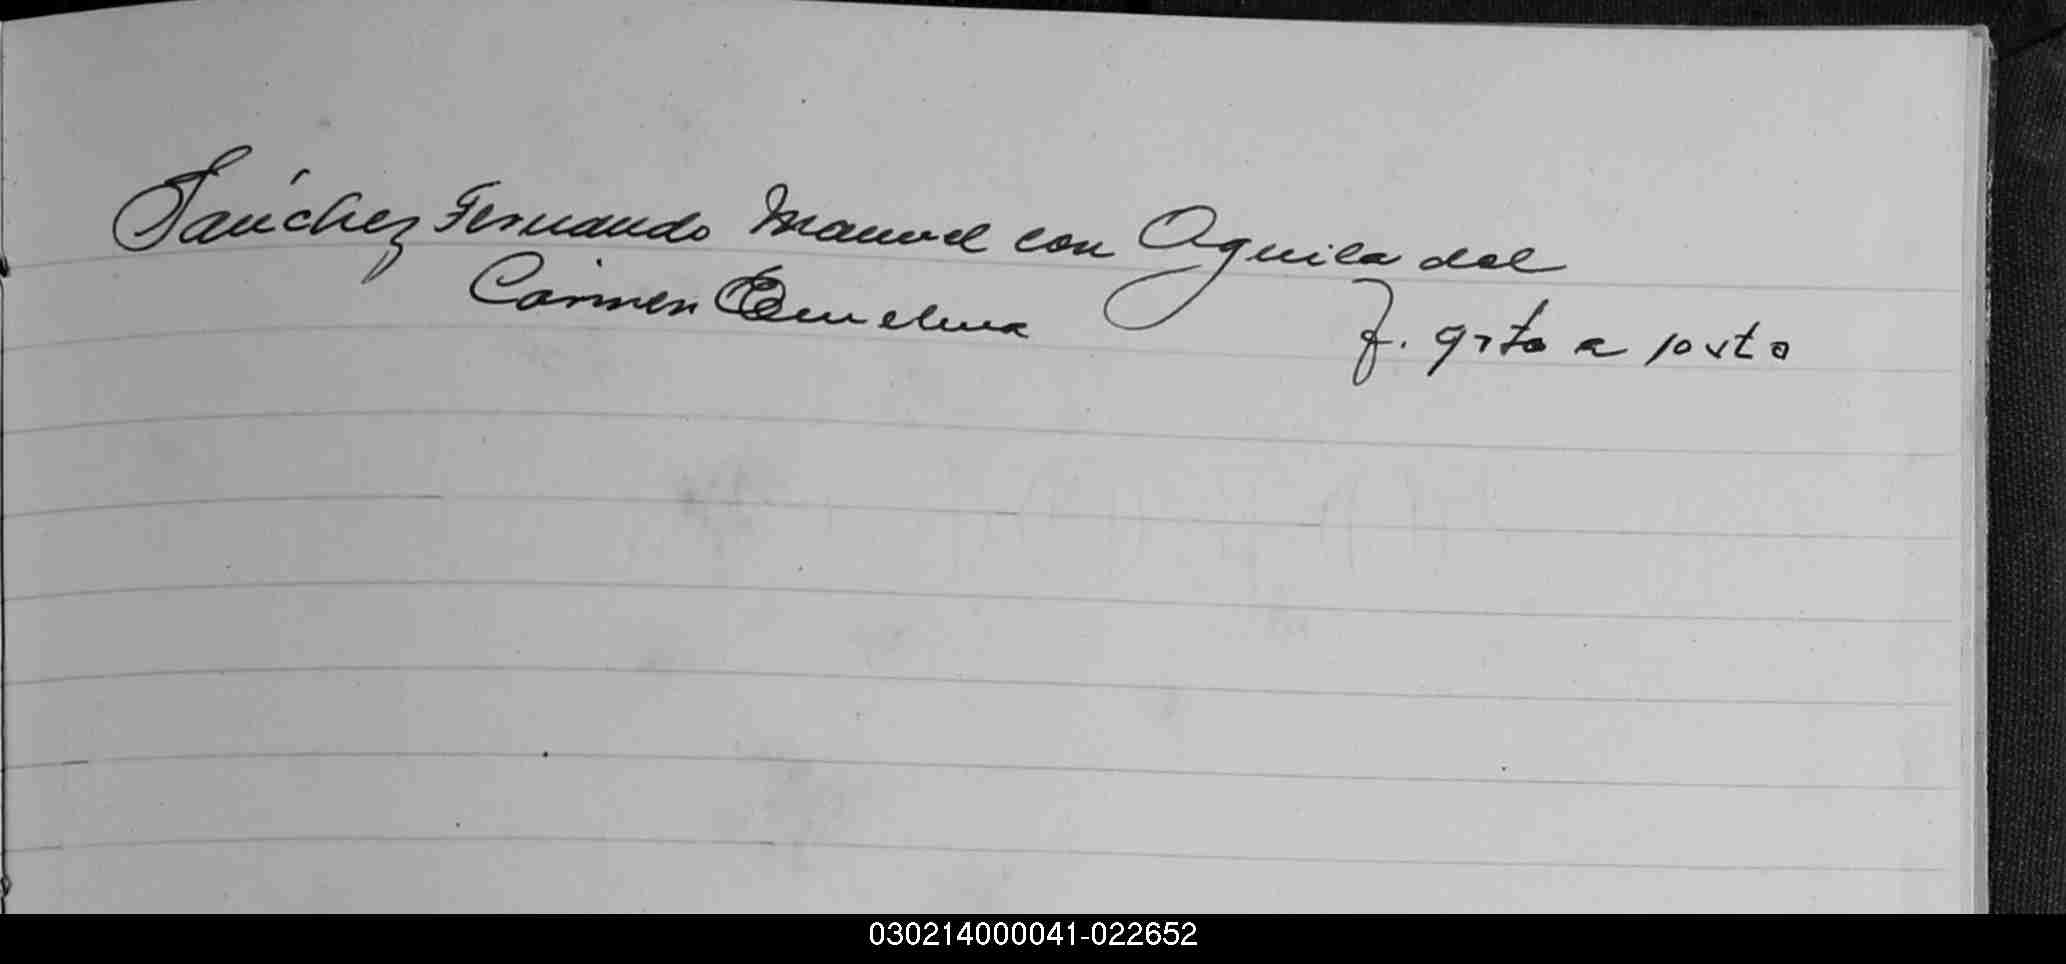 Sánchez Fernando Manuel con Aguila del
Carmen Emelina
f. 97to a 10vto
030214000041-022652